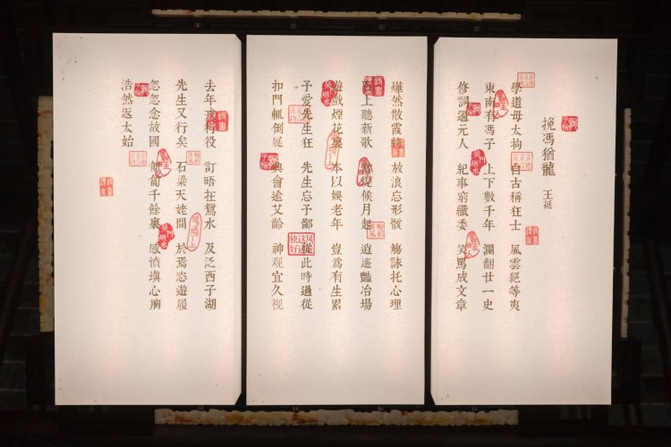 挽馮猶龍 王挺
學道毋太拘 自古稱狂士 風雲絕等夷
東南有馮子 上下數千年 瀾翻廿一史
修詞逼元人 紀事窮纖委 笑罵成文章
燁然散霞綺 放浪忘形骸 觴詠托心理
石上聽新歌 當堤候月起 逍遙艷冶場
遊戲煙花裏 本以娛老年 豈爲有生累
予愛先生狂 先生忘予鄙 從此時過從
扣門輒倒屣 興會逾艾齡 神观宜久视
去年戒行役 訂晤在鴛水 及泛西子湖
先生又行矣 石梁天姥間 於焉恣遊履
忽忽念故國 匍匐千餘裏 感憤塡心胸
浩然返太始